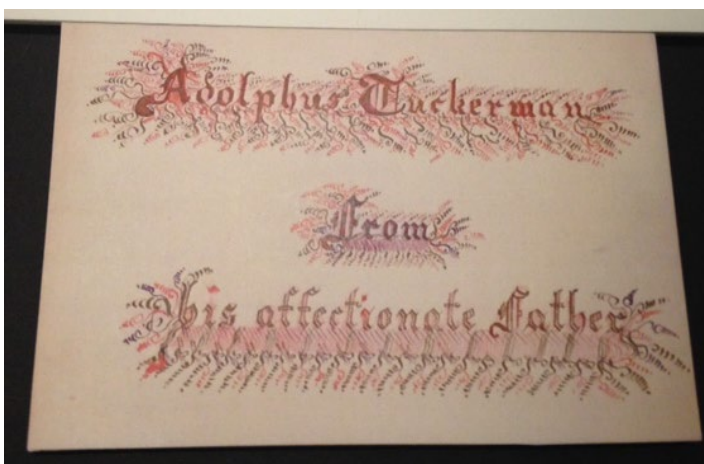 Adolphus Tuckerman
From
his affectionate Father